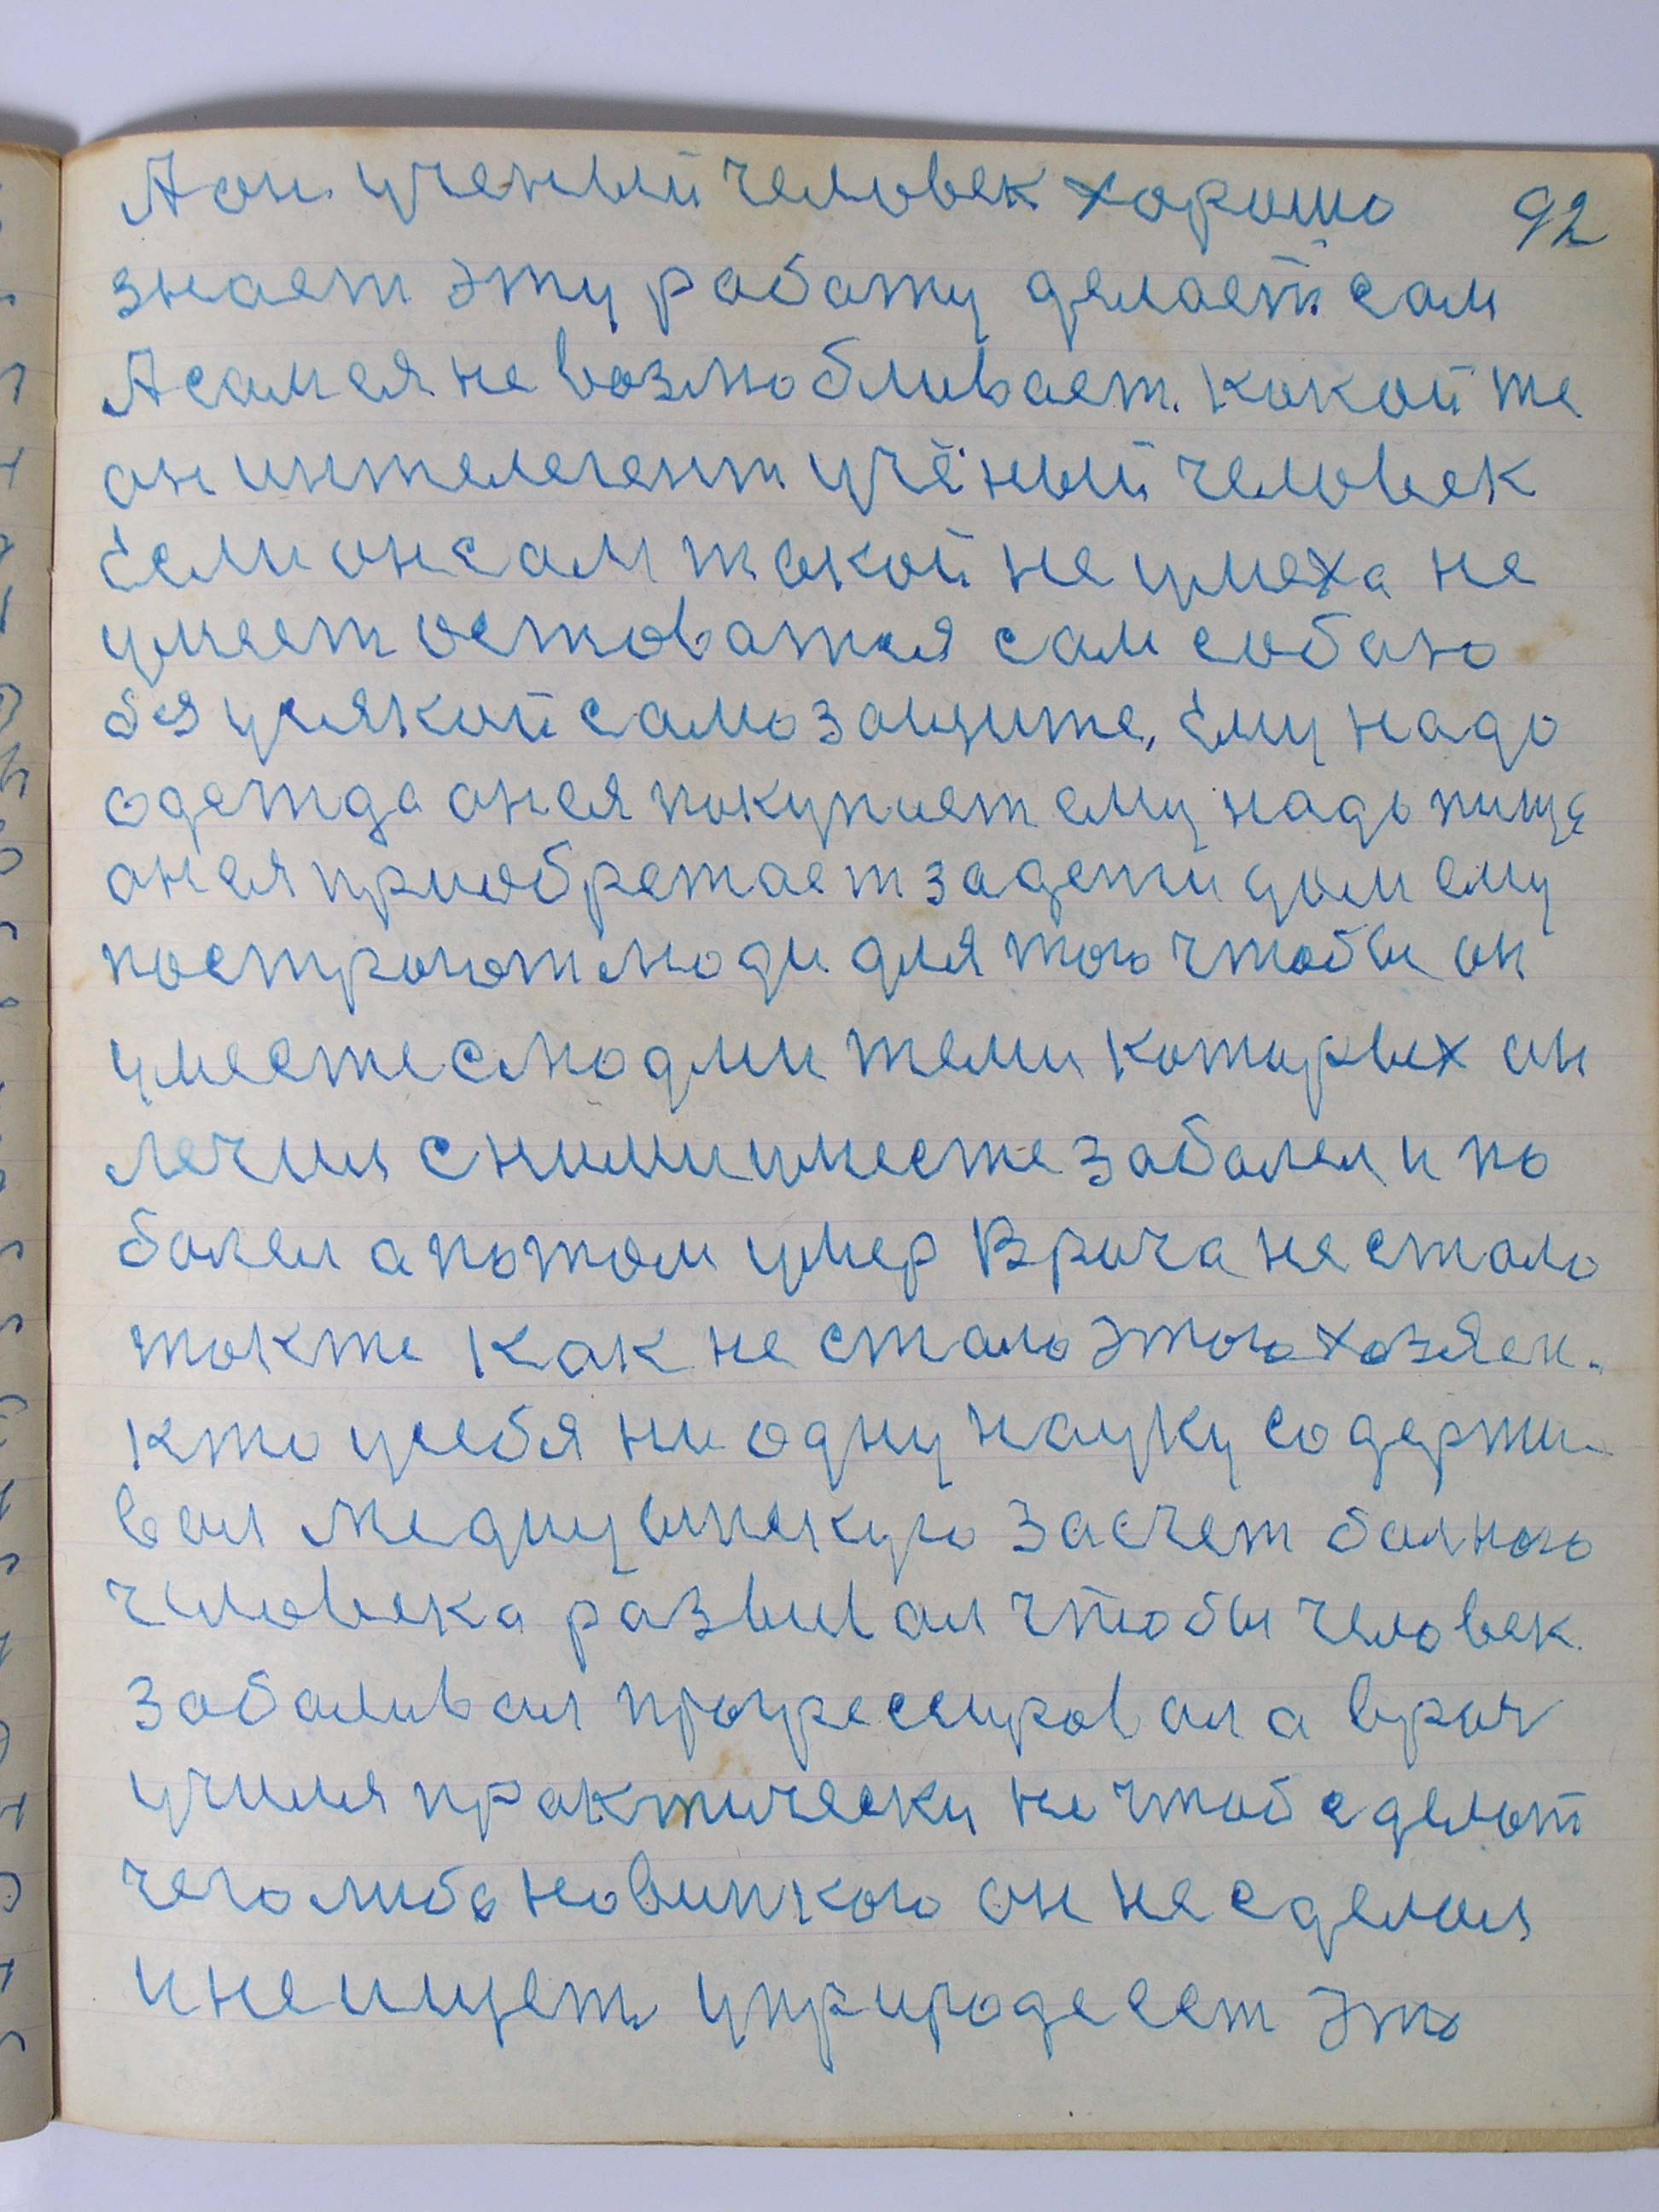 А он ученый человек хорошо 92
знает эту работу делает сам
А сам ея не возлюбливает. какой же
он интелегент учёный человек
Если он сам такой не умеха не
умеет остоватся сам собаю
бз усякой самозащите, Ему надо
одежда он ея покупает ему надо пища
он ея приобретает за дени дом ему
построют люди для того чтобы он
уместе слюдми теми которых он
лечил с ними уместе заболел и по
болел а потом умер Врача не стало
также как не стало этого хозяен.
кто усебя ни одну науку содержи-
вал медицинскую засчет болного
человека развивал чтобы человек
заболивал прогрессировал а врач
учился практически не чтоб сделат
чего либо новинкого он не сделал
и не ищет уприроде ест это